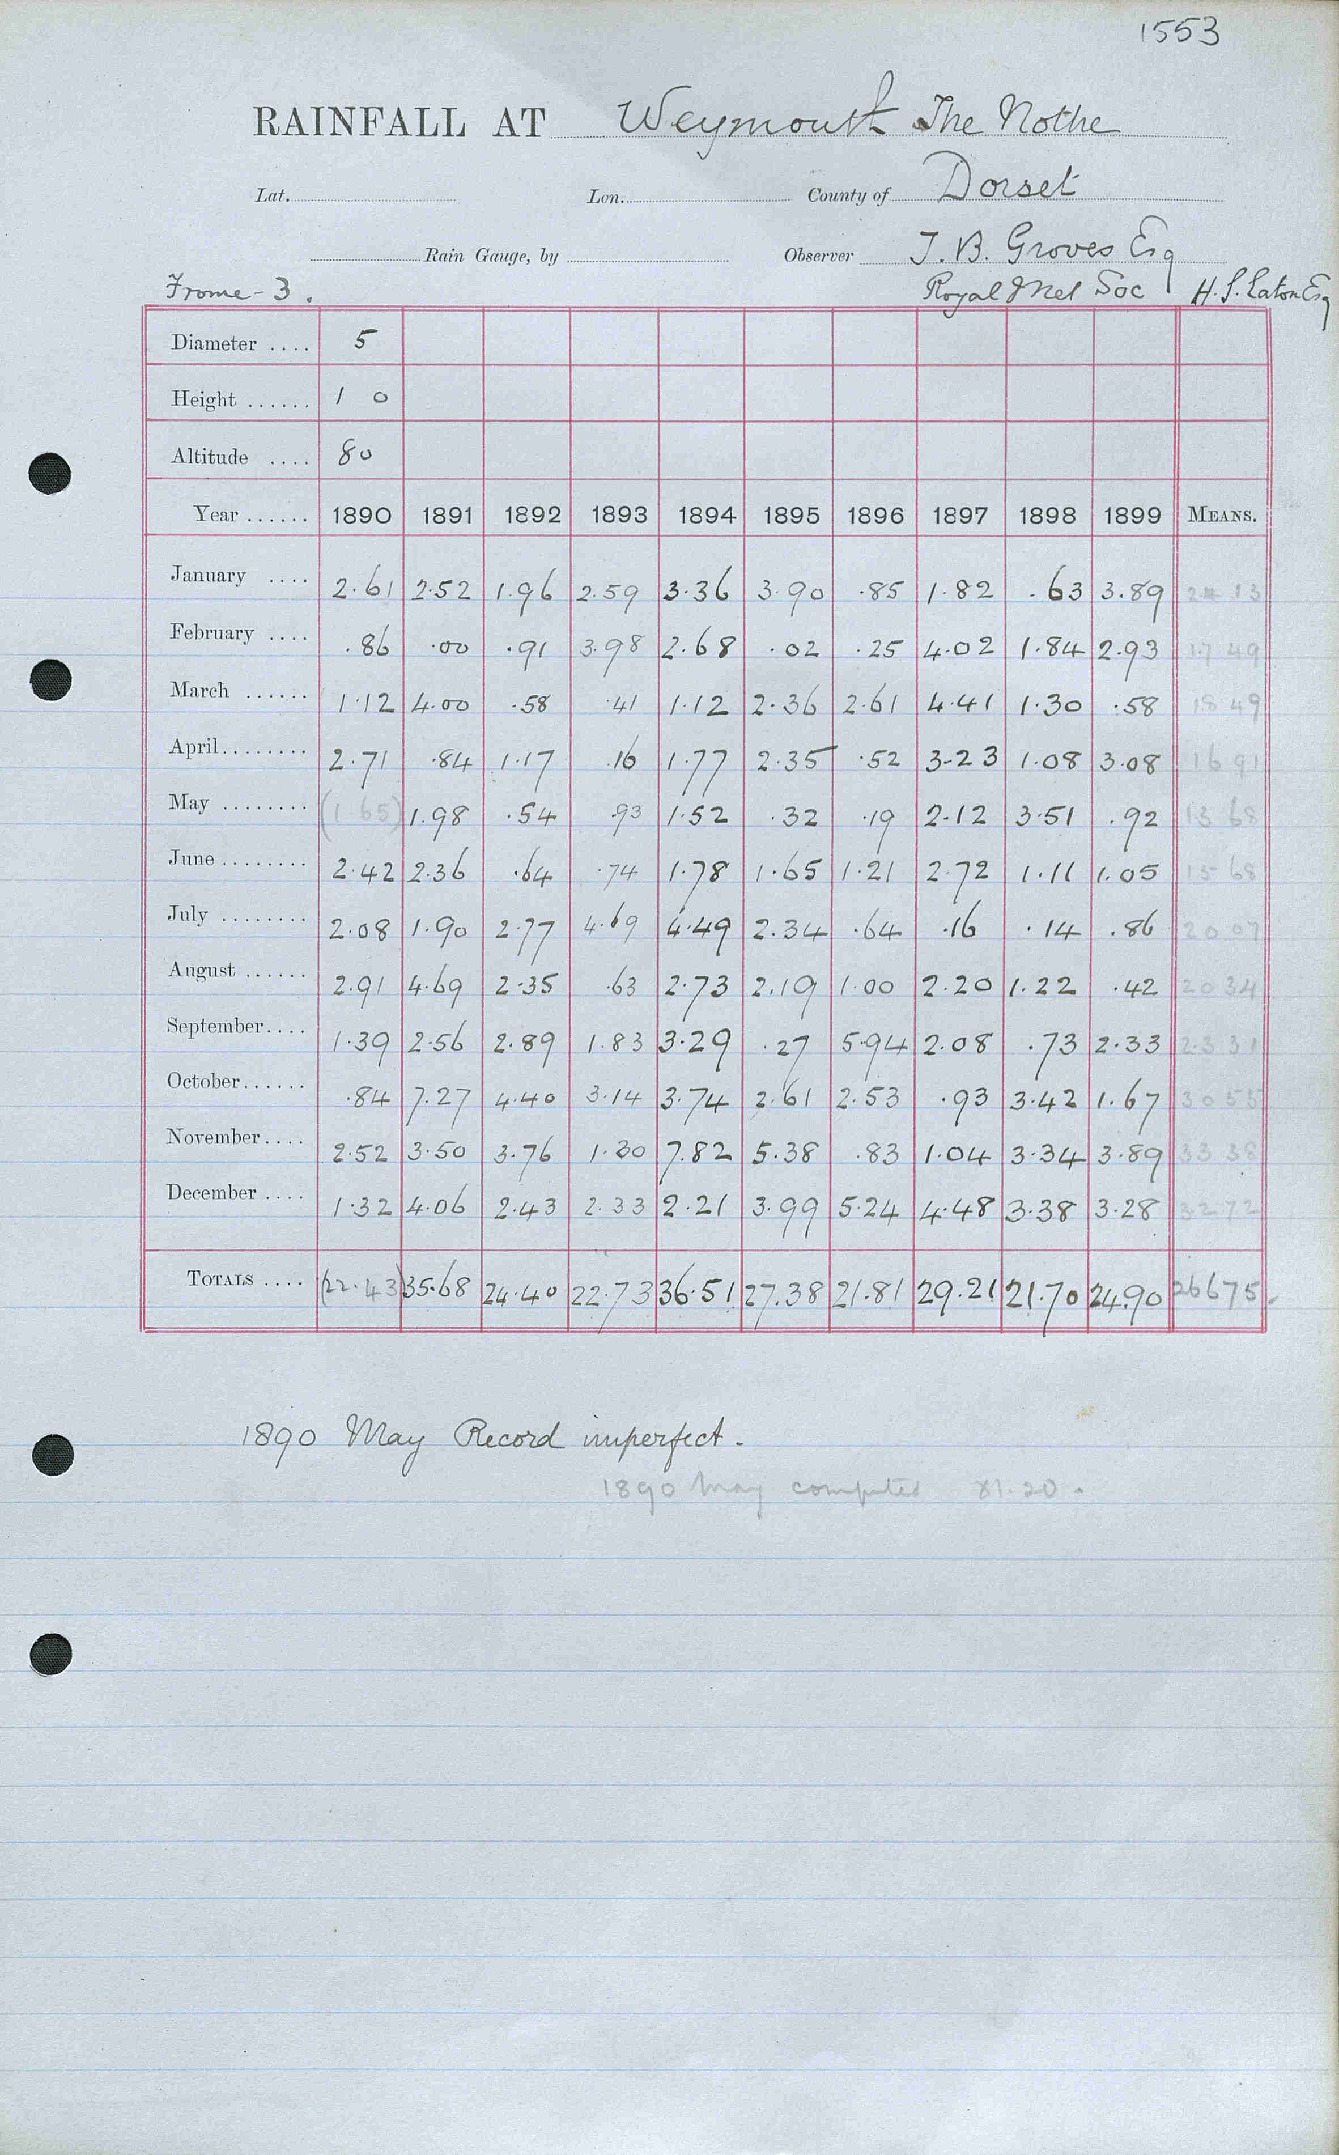 1553
RAINFALL AT Weymouth The Nothe
Lat. Lon. County of Dorset
Rain Gauge, by Observer T. B. Groves Esq
Frome - 3. Royal Met Soc H. S. Eaton Esq
Diameter .... 5
Height ...... 1 0
Altitude .... 80
Year ...... 1890 1891 1892 1893 1894 1895 1896 1897 1898 1899 MEANS.
January .... 2.61 2.52 1.96 2.59 3.36 3.90 .85 1.82 .63 3.89 24 13
February .... .86 .00 .91 3.98 2.68 .02 .25 4.02 1.84 2.93 17 49
March ...... 1.12 4.00 .58 .41 1.12 2.36 2.61 4.41 1.30 .58 18 49
April ........ 2.71 .84 1.17 .16 1.77 2.35 .52 3.23 1.08 3.08 16 91
May ........ (1.65) 1.98 .54 .93 1.52 .32 .19 2.12 3.51 .92 13 68
June ........ 2.42 2.36 .64 .74 1.78 1.65 1.21 2.72 1.11 1.05 15 68
July ........ 2.08 1.90 2.77 4.69 4.49 2.34 .64 .16 .14 .86 20 07
August ...... 2.91 4.69 2.35 .63 2.73 2.19 1.00 2.20 1.22 .42 20 34
September .... 1.39 2.56 2.89 1.83 3.29 .27 5.94 2.08 .73 2.33 23 31
October ...... .84 7.27 4.40 3.14 3.74 2.61 2.53 .93 3.42 1.67 30 55
November .... 2.52 3.50 3.76 1.30 7.82 5.38 .83 1.04 3.34 3.89 33 38
December .... 1.32 4.06 2.43 2.33 2.21 3.99 5.24 4.48 3.38 3.28 32 72
TOTALS .... (22.43) 35.68 24.40 22.73 36.51 27.38 21.81 29.21 21.70 24.90 266 75
1890 May Record imperfect.
1890 May computed 1.20.